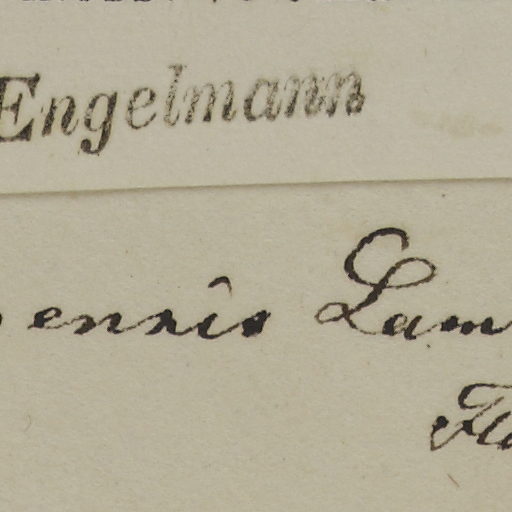 Engelmann
ensis Lam
Flo